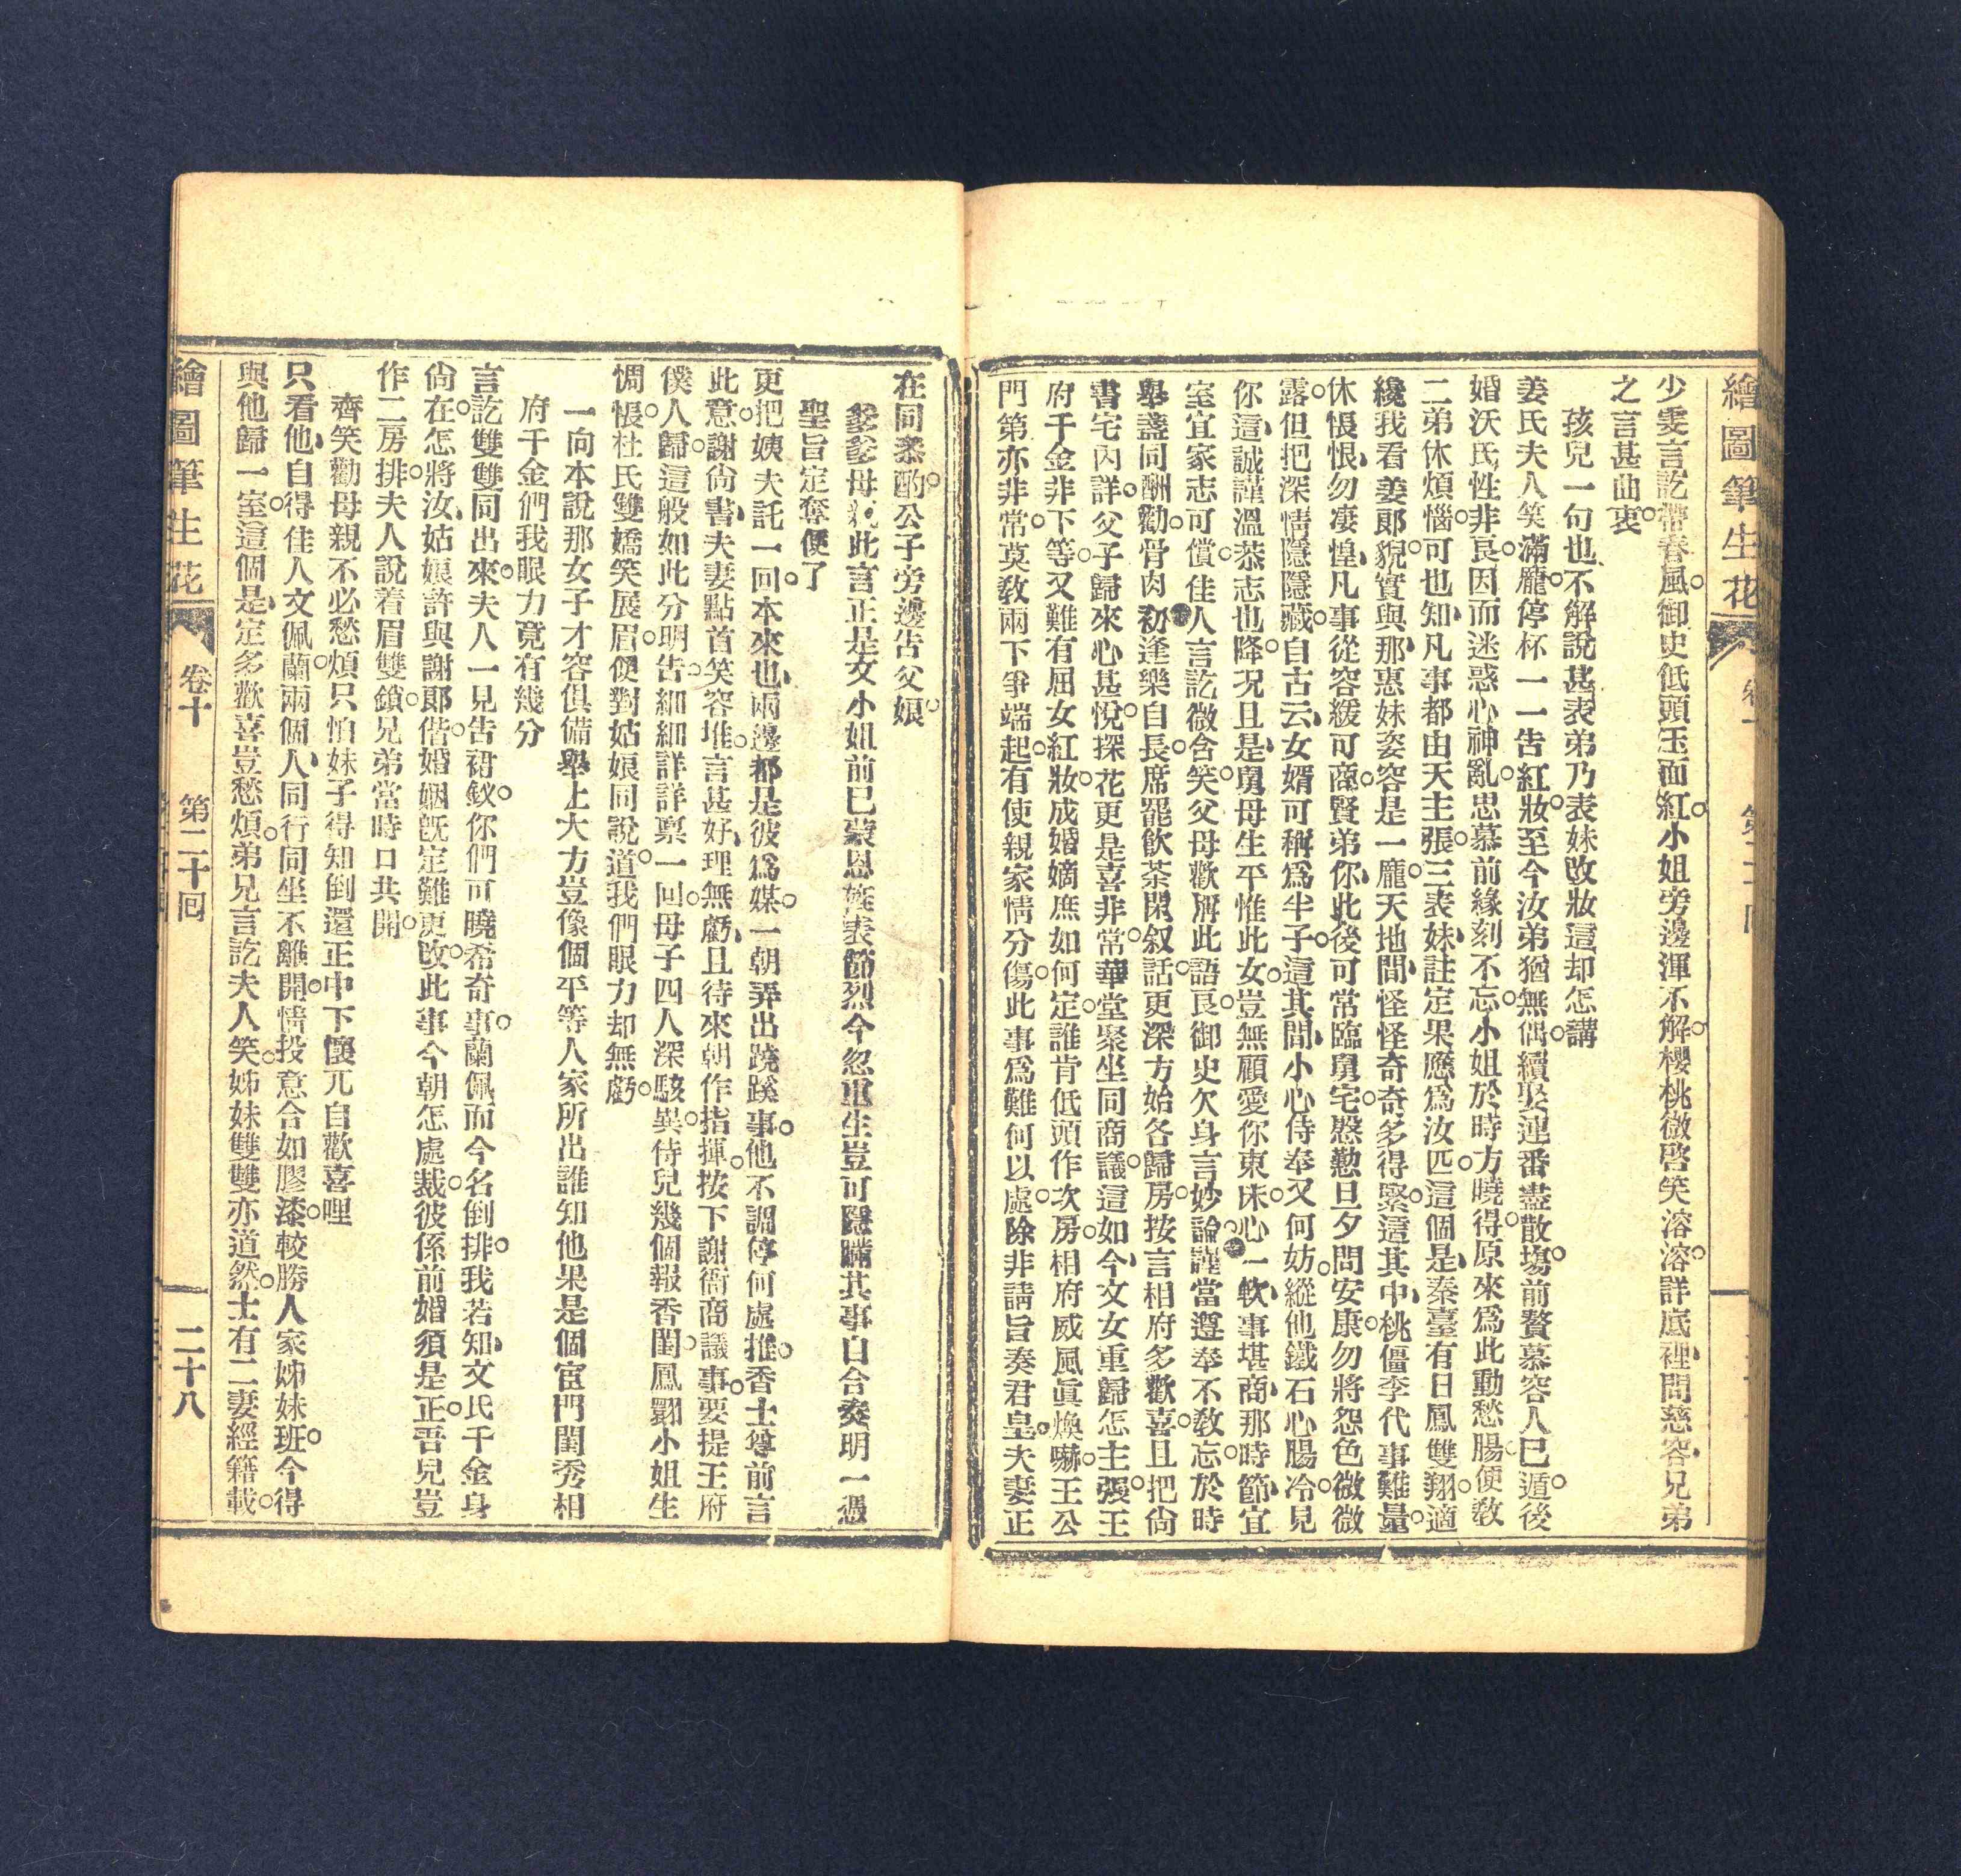 繪圖筆生花
少雯言訖帶春風。御史低頭玉面紅。小姐旁邊渾不解。櫻桃微啓笑溶溶。詳底裡、問慈容、兄弟
之言甚曲衷。
孩兒一句也不解說甚表弟乃表妹改妝這却怎講
姜氏夫人笑滿龐。停杯一一告紅妝。至今汝弟猶無偶。續娶連番盡散塲。前贅慕容人已遁。後
婚沃氏性非良。因而迷惑心神亂。思慕前緣刻不忘。小姐於時方曉得。原來爲此動愁腸。便教
二弟休煩惱。可也知、凡事都由天主張。三表妹、註定果應爲汝匹。這個是、秦臺有日鳳雙翔。適
纔我看姜郞貌。實與那、惠妹姿容是一龐。天地間、怪怪奇奇多得緊。這其中、桃僵李代事難量。
休悵恨、勿凄惶、凡事從容緩可商。賢弟你、此後可常臨舅宅。慇懃旦夕問安康。勿將怨色微微
露。但把深情隱隱藏。自古云、女婿可稱爲半子。這其間、小心侍奉又何妨。縱他鐵石心腸冷。見
你這、誠謹溫恭志也降。况且是、舅母生平惟此女。豈無顧愛你東床。心一軟、事堪商、那時節、宜
室宜家志可償。佳人言訖微含笑。父母歡稱此語良。御史欠身言妙論。謹當遵奉不敎忘。於時
舉盞同酬勸。骨肉初逢樂自長。席罷飮茶閑叙話。更深方始各歸房。按言相府多歡喜。且把尙
書宅內詳。父子歸來心甚悅。探花更是喜非常。華堂聚坐同商議。這如今、文女重歸怎主張。王
府千金非下等。又難有屈女紅妝。成婚嫡庶如何定。誰肯低頭作次房。相府威風眞煥嚇。王公
門第亦非常。莫敎兩下爭端起。有使親家情分傷。此事爲難何以處。除非請旨奏君皇。夫妻正
在同叅酌。公子旁邊告父娘。
爹爹母親此言正是文小姐前已蒙恩旌表節烈今忽重生豈可隱瞞其事自合奏明一憑
聖旨定奪便了
更把姨夫託一回。本來也、兩邊都是彼爲媒。一朝弄出蹺蹊事。他不調停何處推。香士尊前言
此意。謝尙書、夫妻點首笑容堆。言甚好、理無虧、且待來朝作指揮。按下謝衙商議事。要提王府
僕人歸。這般如此分明告。細細詳詳禀一回。母子四人深駭異。侍兒幾個報香閨。鳳䎘小姐生
惆悵。杜氏雙嬌笑展眉。便對姑娘同說道。我們眼力却無虧。
一向本說那女子才容俱備舉止大方豈像個平等人家所出誰知他果是個宦門閨秀相
府千金們我眼力竟有幾分
言訖雙雙同出來。夫人一見告裙釵。你們可曉希奇事。蘭佩而今名倒排。我若知、文氏千金身
尙在。怎將汝、姑娘許與謝郞偕。婚姻旣定難更改。此事今朝怎處裁。彼係前婚須是正。吾兒豈
作二房排。夫人說着眉雙鎖。兄弟當時口共開。
齊笑勸母親不必愁煩只怕妹子得知倒還正中下懷兀自歡喜哩
只看他、自得佳人文佩蘭。兩個人、同行同坐不離開。情投意合如膠漆。較勝人家姊妹班。今得
與他歸一室。這個是、定多歡喜豈愁煩。弟兄言訖夫人笑。姊妹雙雙亦道然。士有二妻經籍載。
繪圖筆生花 卷十 第二十回 二十八